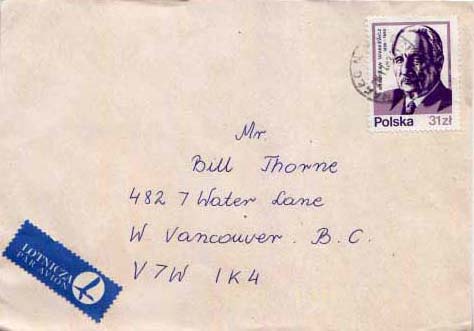 Polska 31zł
Mr.
Bill Thorne
4827 Water Lane
W Vancouver. B.C.
V7W 1K4
LOTNICZA
PAR AVION